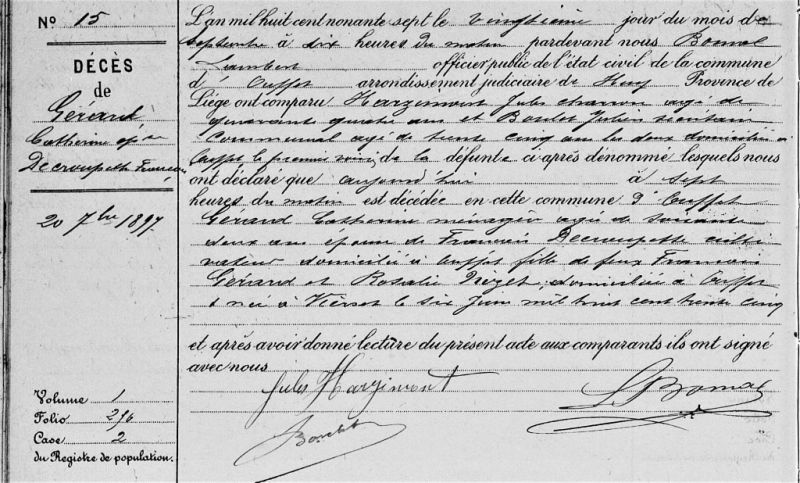 No 15
DÉCÈS
de
Gérard
Catherine ép. de
Decroupette François
20 7bre 1897
Volume 1
Folio 216
Case 2
du Registre de population.
L'an mil huit cent nonante sept le vingtième jour du mois de
septembre à six heures du matin pardevant nous Bomal
Lambert officier public de l'état civil de la commune
d' Ouffet arrondissement judiciaire de Huy Province de
Liége ont comparu Hargimont Jules charron agé de
quarante quatre ans et Boulet Julien secrétaire
communal agé de trente cinq ans les deux domiciliés à
Ouffet le premier voisin de la défunte ci après dénommé lesquels nous
ont déclaré que aujourd'hui à sept
heures du matin est décédée en cette commune d' Ouffet
Gérard Catherine ménagère agée de soixante
deux ans épouse de François Decroupette culti
vateur domicilié à Ouffet fille de feux François
Gérard et Rosalie domiciliée à Ouffet
née à Vierset le six Juin mil huit cent trente cinq
et après avoir donné lecture du présent acte aux comparants ils ont signé
avec nous
Jules Hargimont
LBomal